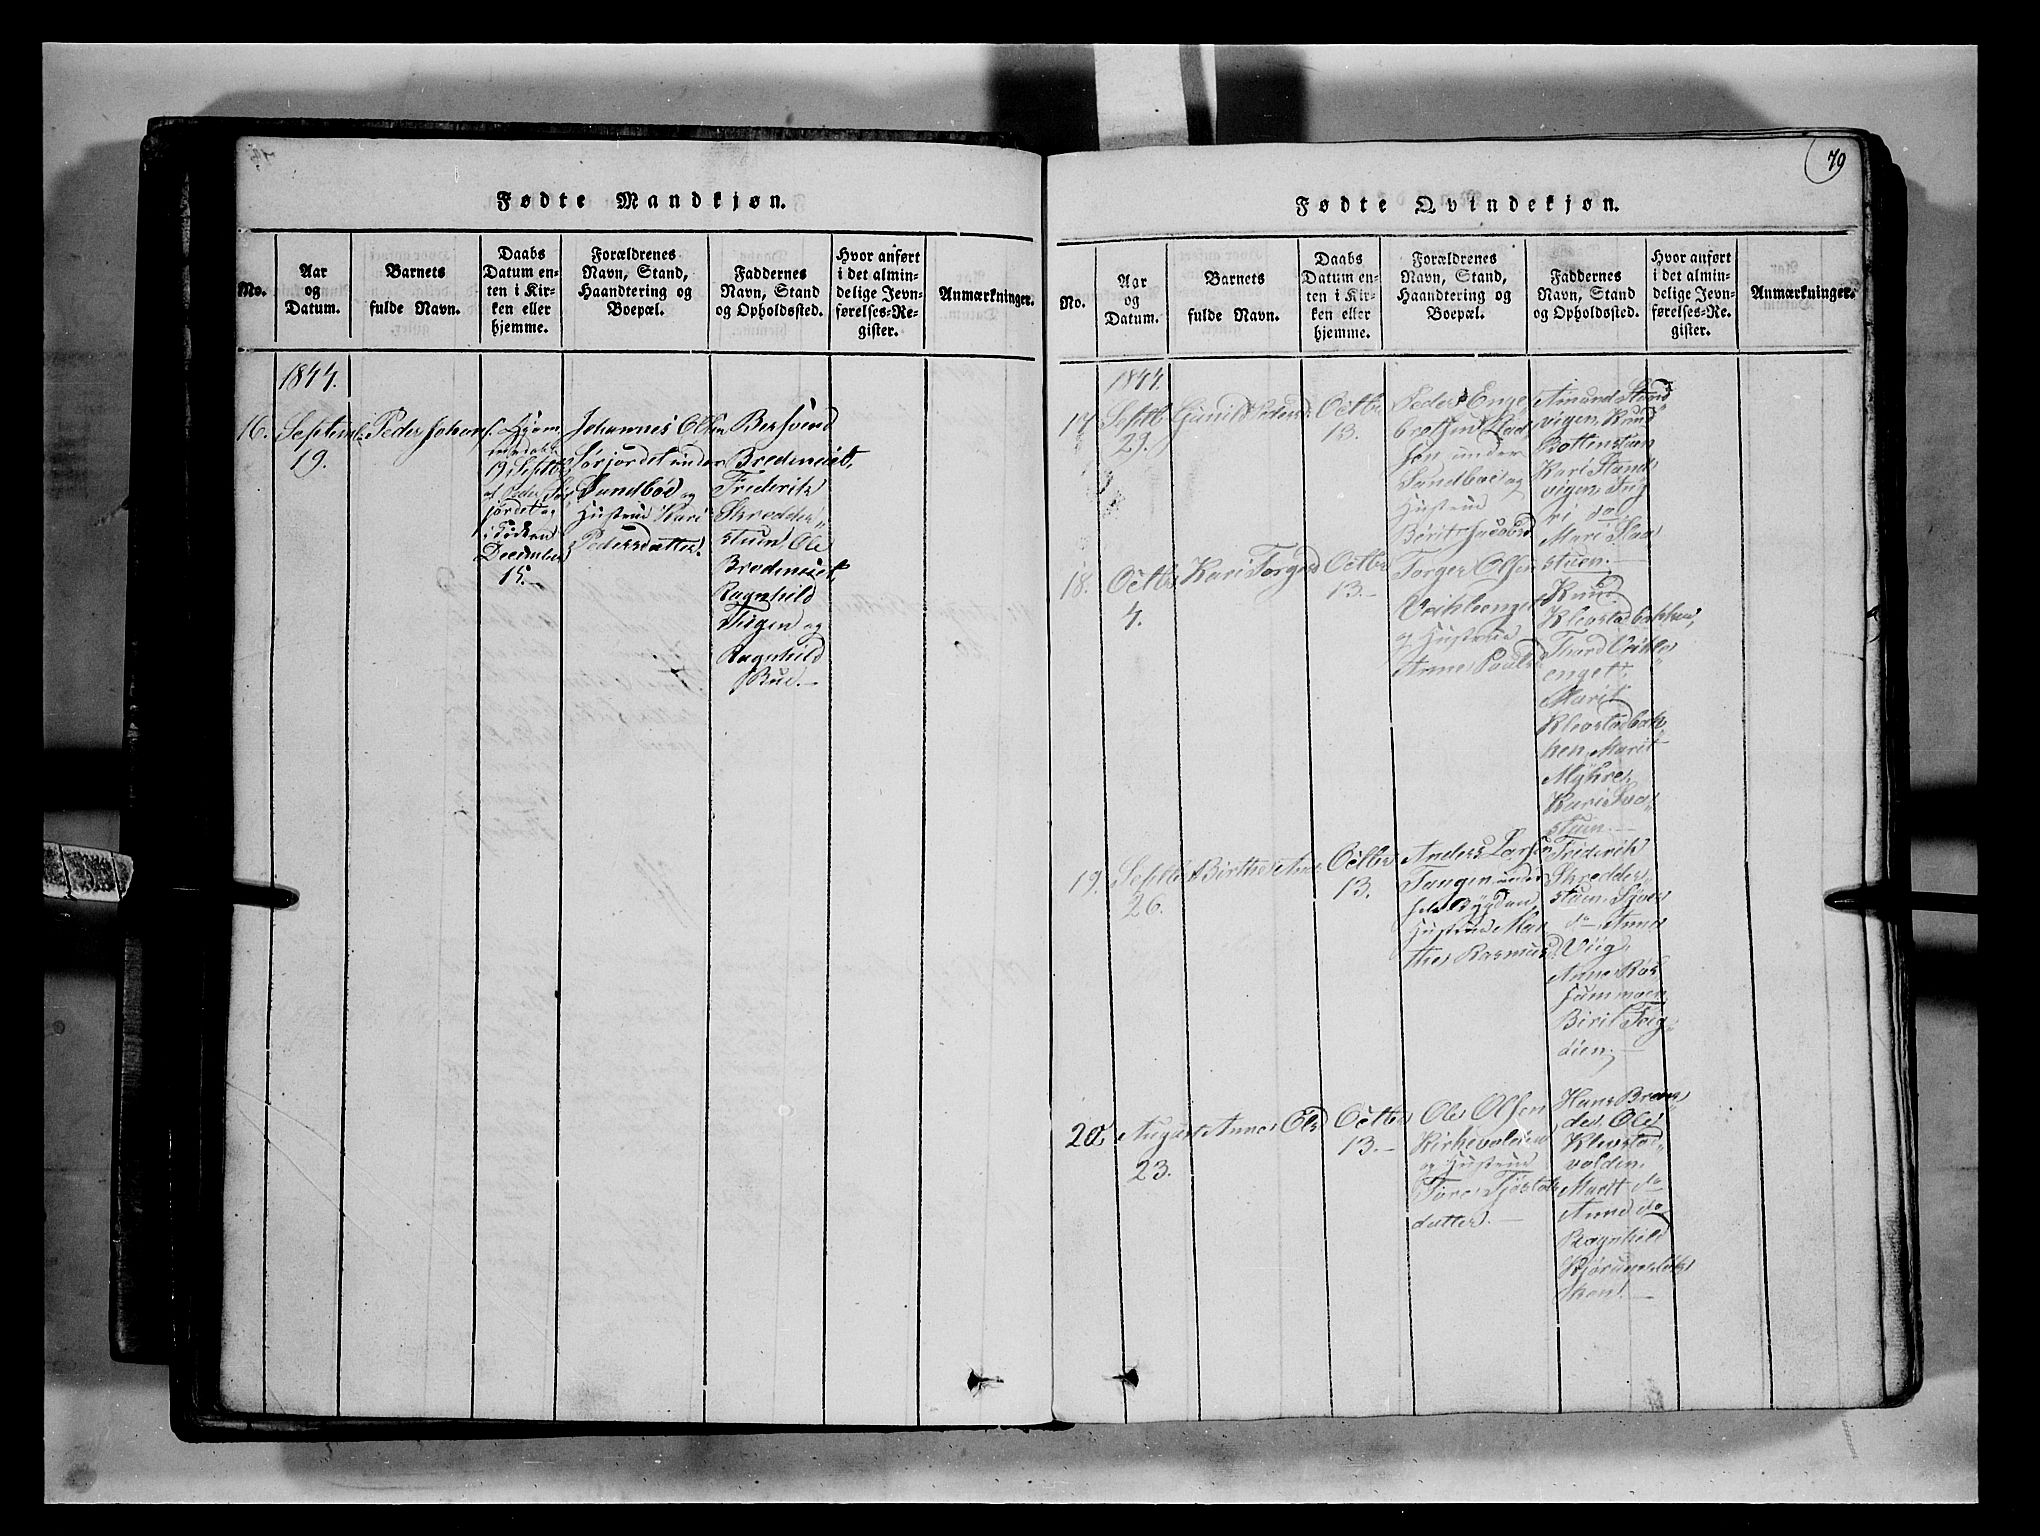 79
Fødte Mandkjøn.
No.
Aar
og
Datum.
Barnets
fulde Navn.
Daabs
Datum en-
ten i Kir-
ken eller
hjemme.
Forældrenes
Navn, Stand,
Haandtering og
Boepæl.
Faddernes
Navn, Stand
og Opholdssted.
Hvor anført
i det almin-
delige Jevn-
førelses-Re-
gister.
Anmærkninger.
1844.
16.
Septemb.
19.
Peder Johans.
Hjem
medøbt
19 Septbr
af Peder Sør
jordet og
i Kirken
December
15.
Johannes Olsen
Sørjordet under
Sandboe og
Hustrue Kari
Pedersdatter.
Bersvend
Bredeneset,
Frederik
Skredder
stuen, Ole
Bredeneset,
Ragnhild
Teigen og
Ragnhild
Bue.
Fødte Qvindekjøn.
No.
Aar
og
Datum.
Barnets
fulde Navn.
Daabs
Datum en-
ten i Kir-
ken eller
hjemme.
Forældrenes
Navn, Stand,
Haandtering og
Boepæl.
Faddernes
Navn, Stand
og Opholdssted.
Hvor anført
i det almin-
delige Jevn-
førelses-Re-
gister.
Anmærkninger.
1844.
17.
Septb.
29.
Gunild Pedersd.
Octbr
13.
Peder Enge
bretsen
under
Sandboe og
Hustrue
Børit Jacobsd
Amund Sand
vigen, Knud
Bottenstuen
Kari Sand
vigen,
ri do
Mari
stuen.
18.
Octbr
4.
Kari Torgersd
Octbr
13.
Torger Olsen
Veikleenget
og Hustrue
Anne Paulsd
Knud
Klevstadbakken,
Veikle
enget,
Marit
Klevstadbak
ken, Marit
Myhre,
Kari
stuen.
19.
Septbr
26.
Birthe And.
Octbr
13.
Anders Larsen
Tangen under
Hustrue Mar
the Rasmusd
Frederik
Skredder
stuen, Syver
do, Anne
Viig,
Anne
Birit Teig
øien.
20.
August
23.
Anne Olsd
Octbr
13.
Ole Olsen
Kirkevolden
og Hustrue
datter.
Hans Bræn
den, Ole
Klevstad
volden,
Marit do
Anne do
Ragnhild